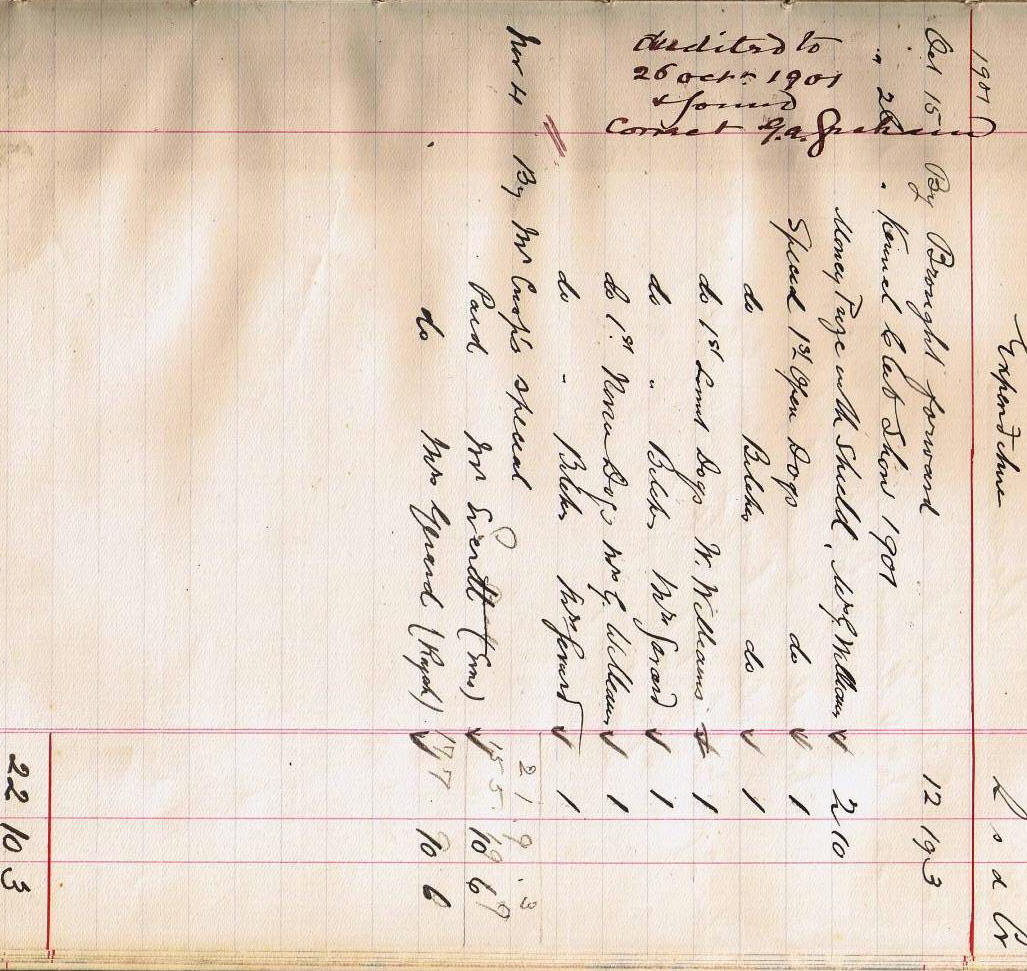 1901 Expenditure £ s d Cr
Oct 15 By Brought forward 12 19 3
" 26 " Kennel Club Show 1901
Money Prize with Shield, Mrs G. Williams 2 10
Special 1st Open Dogs do 1
do Bitches do 1
do 1st Limit Dogs W. Williams 1
do " Bitches Mrs Gerard 1
do 1st Novice Dogs Mrs G. Williams 1
do " Bitches Mrs Gerard 1
2 1 9 3
Nov 4 By Mr special
Paid Mr 10 6
do Mrs Gerard (Rajah) 10 6
22 10 3
Audited to
26 Octr 1901
& found
Correct G.A. Graham